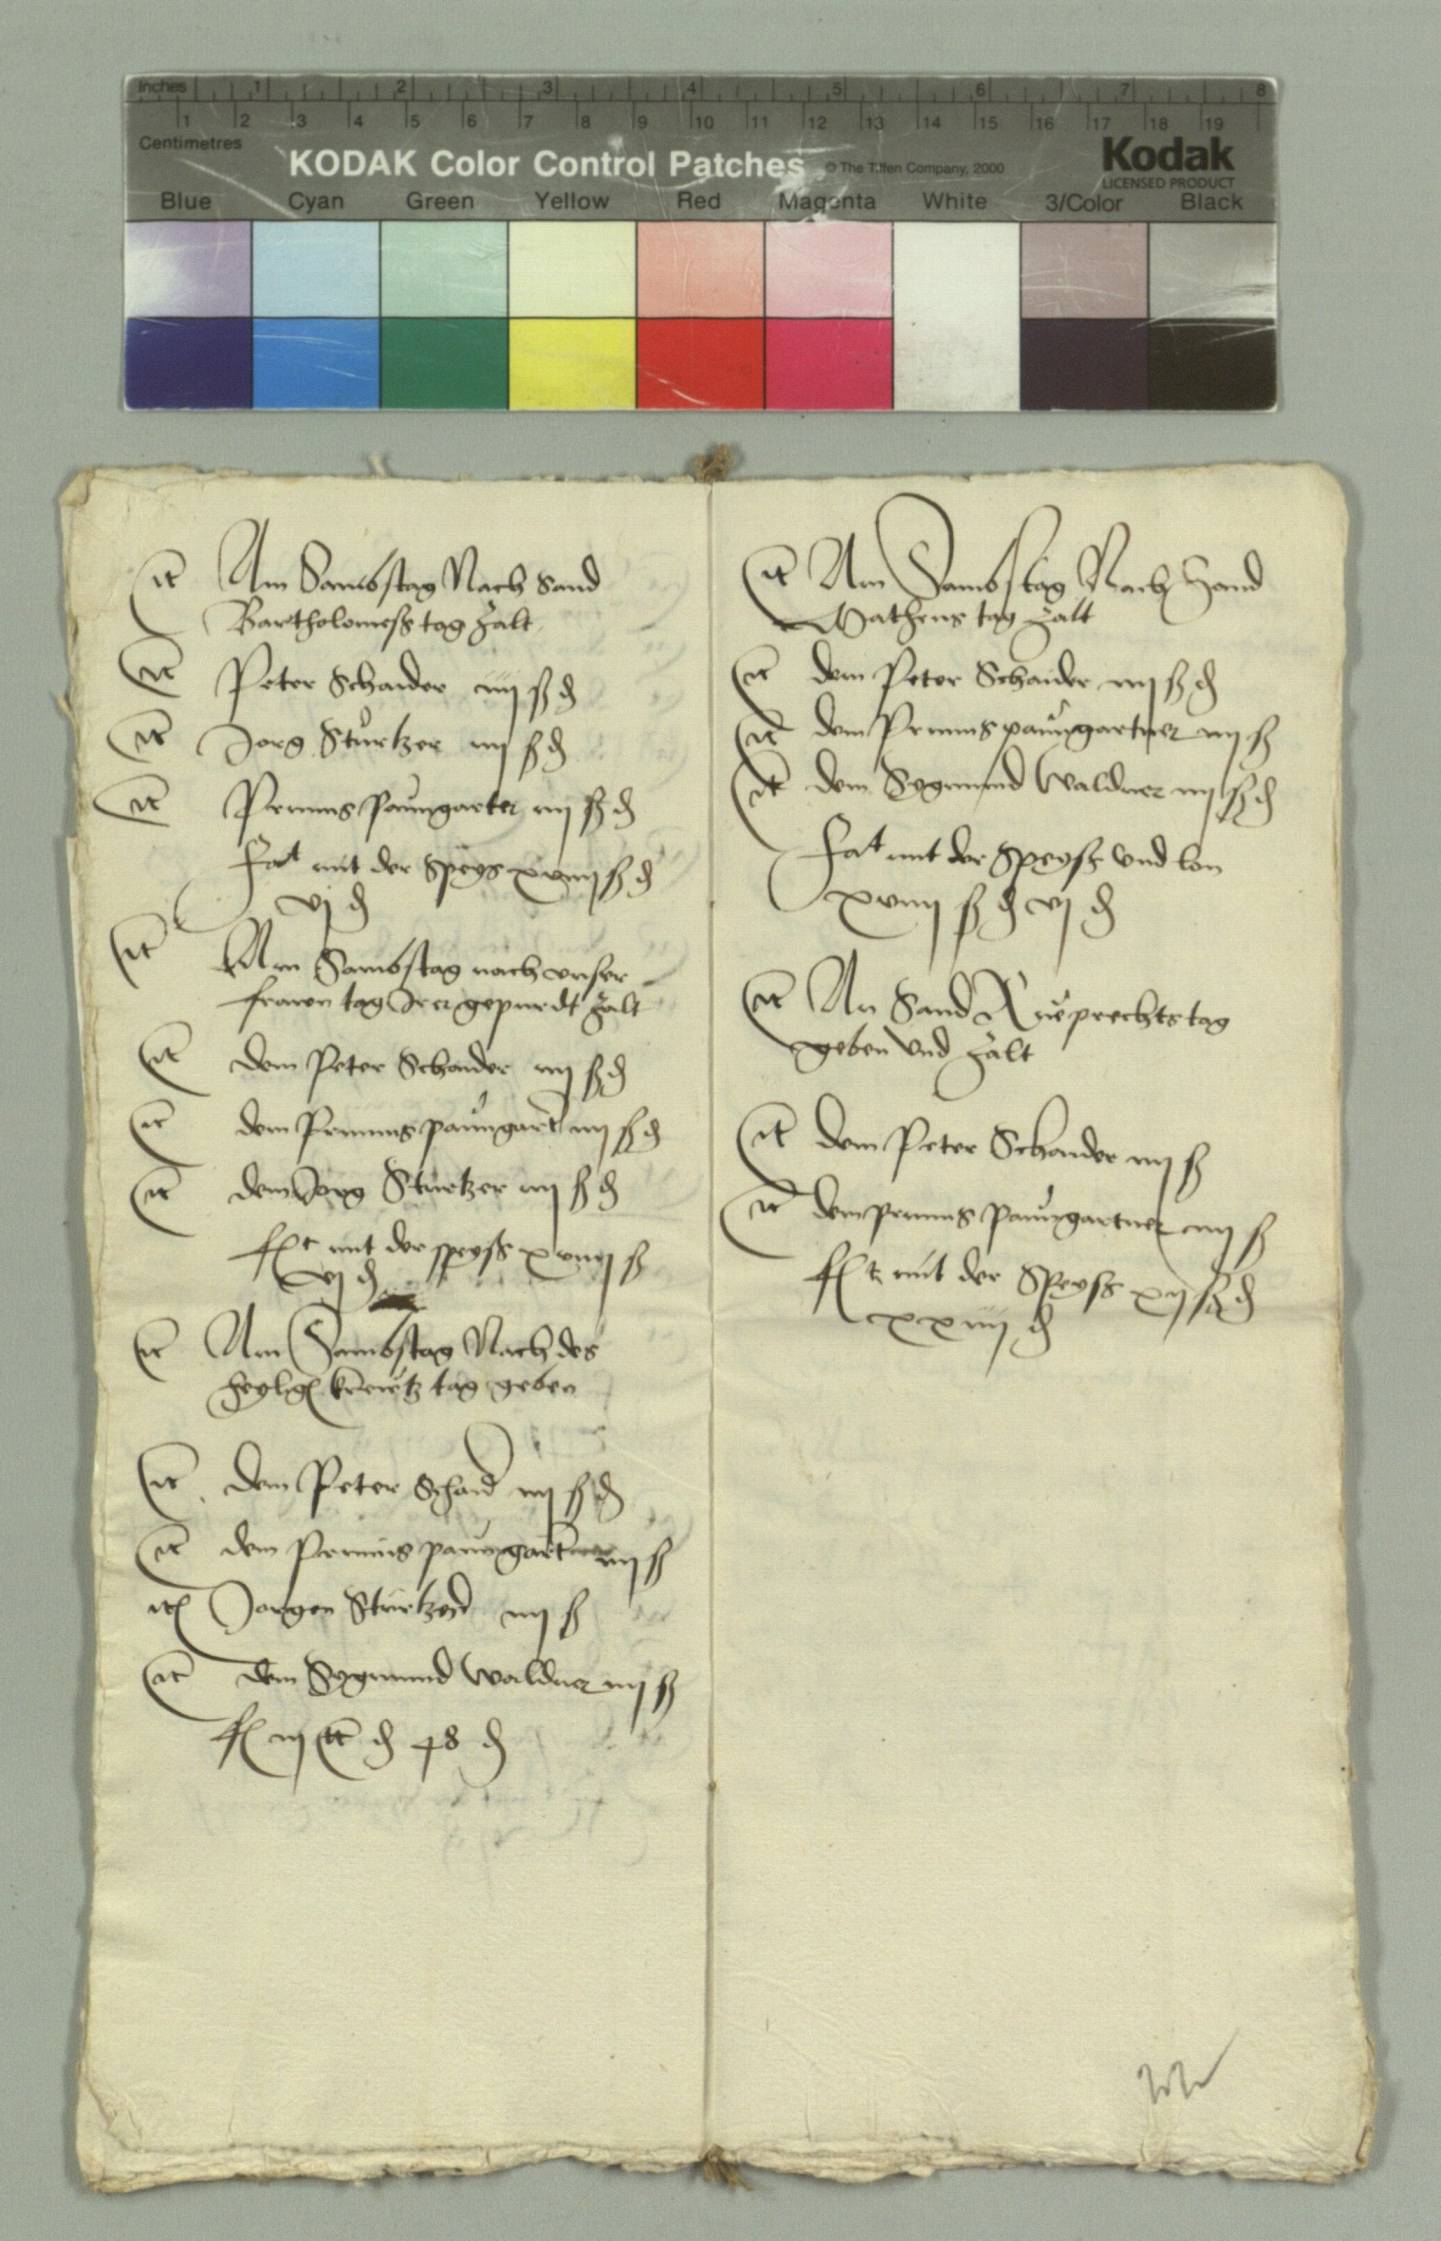 Inches 1 2 3 4 5 6 7 8
1 2 3 4 5 6 7 8 9 10 11 12 13 14 15 16 17 18 19
Centimetres
KODAK Color Control Patches © The Tiffen Company, 2000 Kodak
LICENSED PRODUCT
Blue Cyan Green Yellow Red Magenta White 3/Color Black
It Am Sambstag Nach Sand
Bartholomess tag zalt
It Peter Schaider iiij ß d
It Jorg Sturtzer iiij ß d
It Primus paumgarter iiij ß d
Fat mit der Speys xviiij ß d
vj d
It Am Sambstag nach vnser
frawen tag Irer gepurdt zalt
It dem Peter Schaider iiij ß d
It dem Primus paumgart iiij ß d
It dem Jorg Sturtzer iiij ß d
mit der speyss xviiij ß
vj d
It Am Sambstag Nach des
heylig kreutz tag geben
It dem Peter Schaid iiij ß d
It dem Primus paumgart iiij ß
It Jorgen Sturtzer iiij ß
It dem Sygmund Waldner iiij ß
iij d 48 d
It Am Sambstag Nach Sand
Matheus tag zalt
It dem Peter Schaider iiij ß d
It dem Primus paumgartner iiij ß
It dem Sygmund Waldner iiij ß d
Fat mit der Speyss vnd lon
xviiij ß d vj d
It An Sand Rueprechts tag
geben vnd zalt
It dem Peter Schaider iiij ß
It dem primus paumgartner iiij ß
mit der Speyss xij ß d
xxiiij d